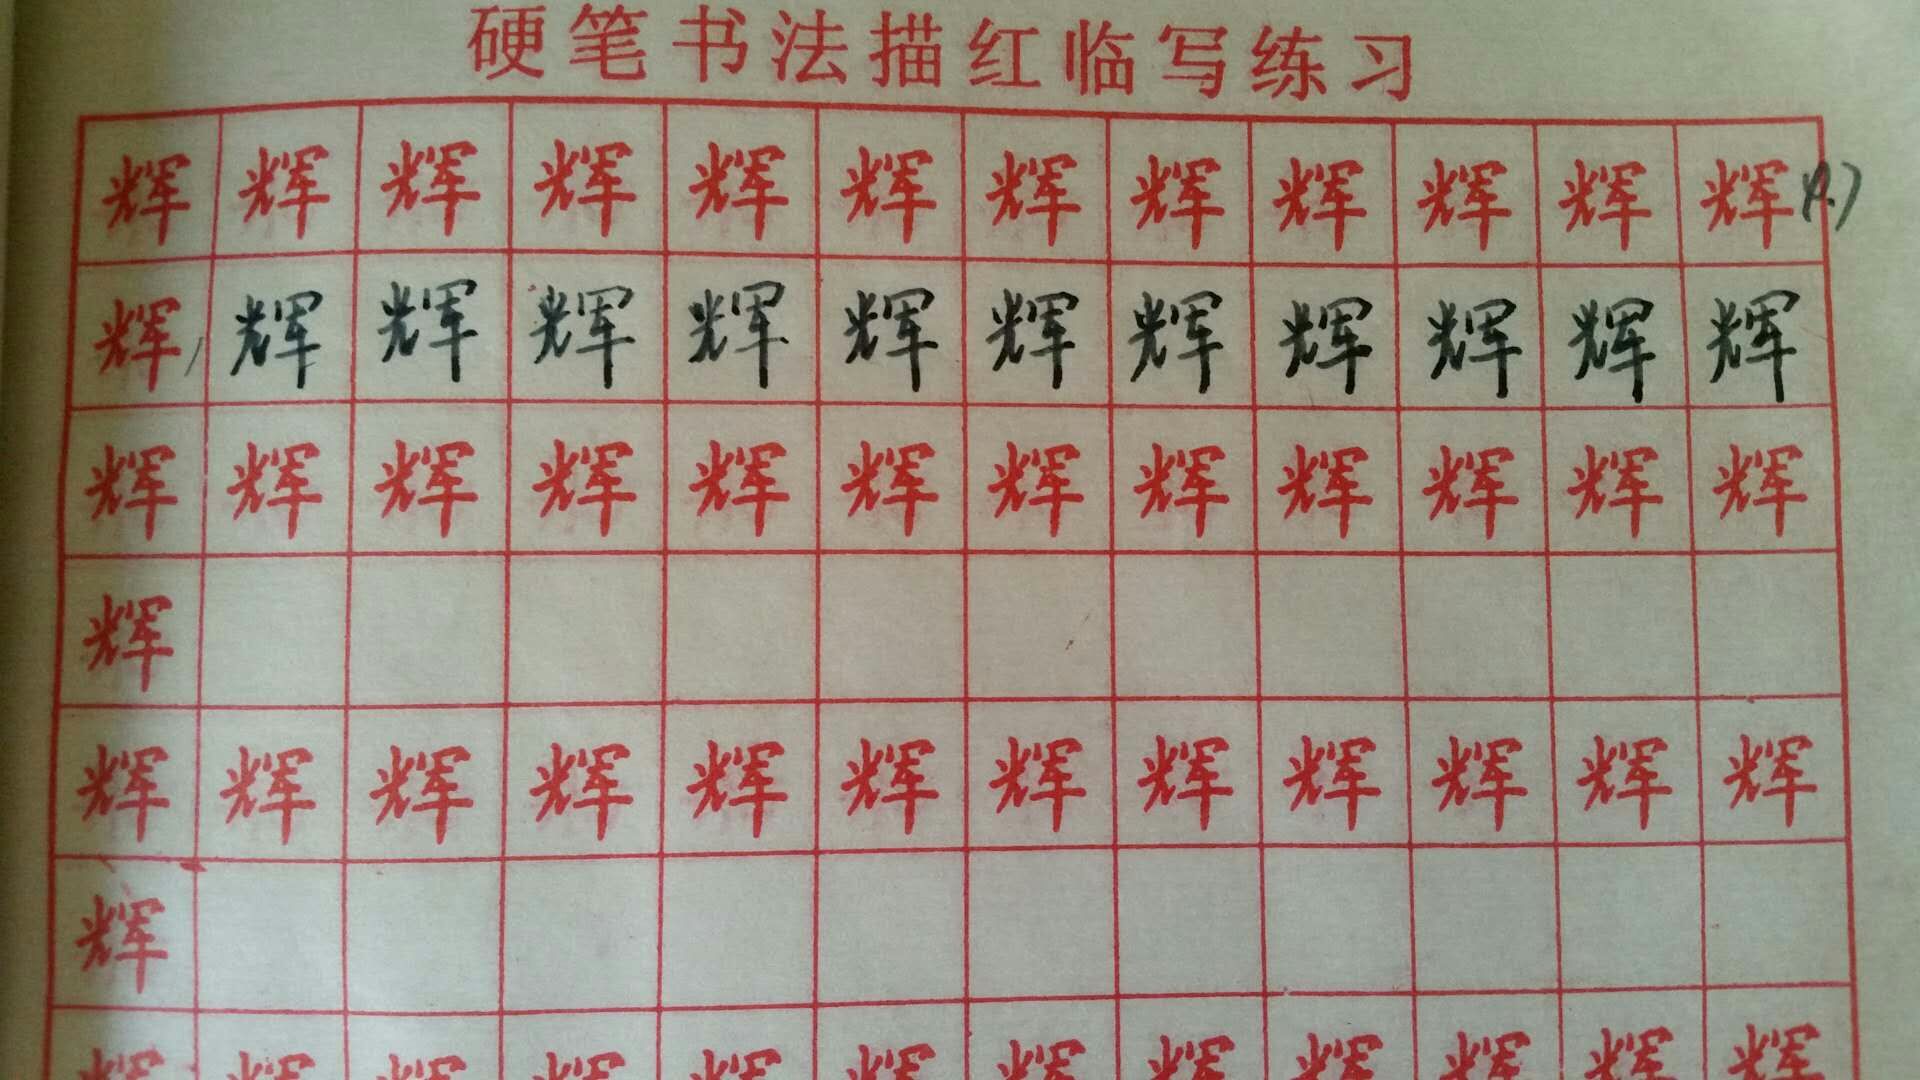 硬笔书法描红临写练习
辉 辉 辉 辉 辉 辉 辉 辉 辉 辉 辉 辉
辉 辉 辉 辉 辉 辉 辉 辉 辉 辉 辉 辉
辉 辉 辉 辉 辉 辉 辉 辉 辉 辉 辉 辉
辉
辉 辉 辉 辉 辉 辉 辉 辉 辉 辉 辉 辉
辉
辉 辉 辉 辉 辉 辉 辉 辉 辉 辉 辉 辉